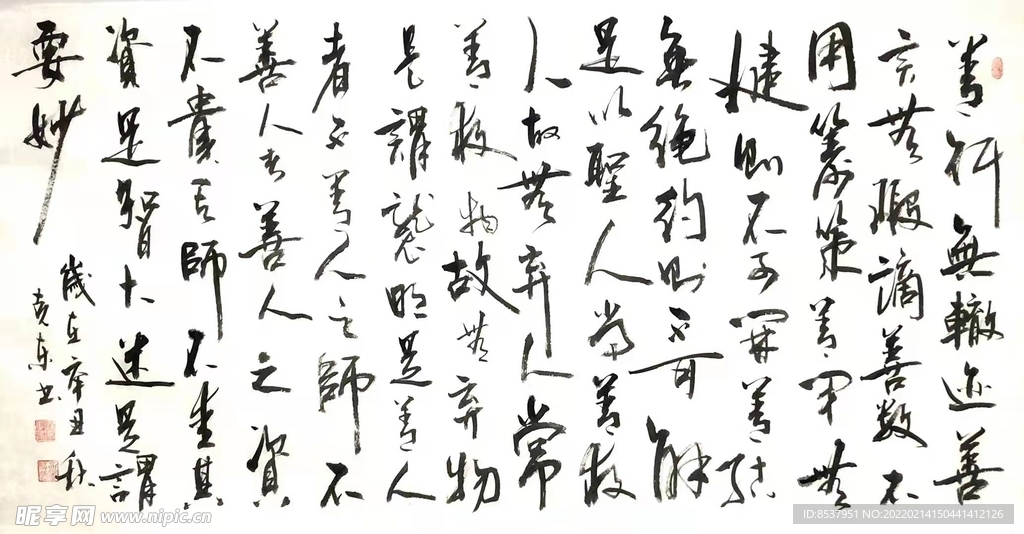 善行無轍迹善
言無瑕謫善數不
用籌策善閉無
楗則不可開善結
無繩約則不可解
是以聖人常善救
人故無棄人常
善救物故無棄物
是謂襲明是善人
者不善人之師不
善人者善人之資
不貴其師不愛其
資是智大迷是謂
要妙
歲在辛丑秋
克東書
昵享网 www.nipic.cn
ID:8537951 NO:20220214150441412126